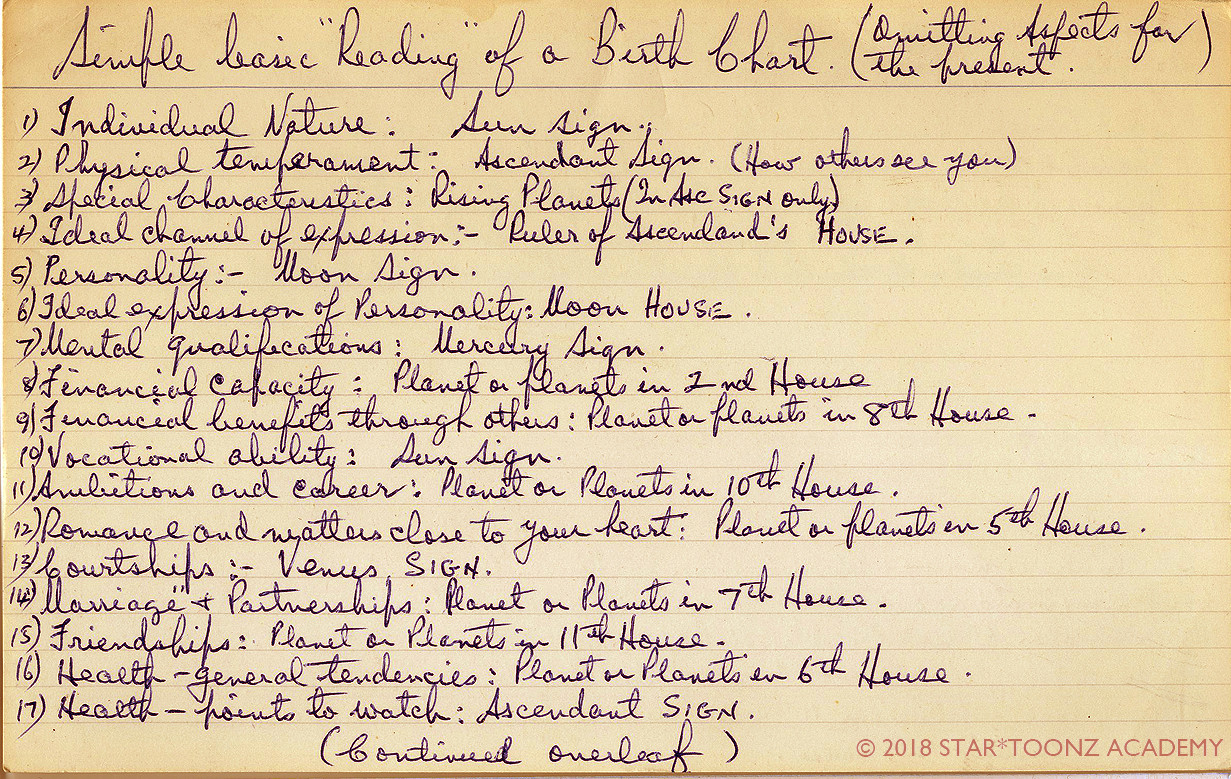 Simple basic "Reading" of a Birth Chart. (Omitting Aspects for the present.)
1) Individual Nature: Sun sign.
2) Physical temperament: Ascendant Sign. (How others see you)
3) Special Characteristics: Rising Planets (In Asc SIGN only)
4) Ideal channel of expression:- Ruler of Ascendand's HOUSE.
5) Personality:- Moon Sign.
6) Ideal expression of Personality: Moon HOUSE.
7) Mental qualifications: Mercury Sign.
8) Financial capacity: Planet or planets in 2nd House
9) Financial benefits through others: Planet or planets in 8th House -
10) Vocational ability: Sun sign.
11) Ambitions and career: Planet or Planets in 10th House.
12) Romance and matters close to your heart: Planet or planets in 5th House.
13) Courtships:- Venus SIGN.
14) "Marriage" + Partnerships: Planet or Planets in 7th House.
15) Friendships: Planet or Planets in 11th House.
16) Health - general tendencies: Planet or Planets in 6th House.
17) Health - points to watch: Ascendant SIGN.
(Continued overleaf)
© 2018 STAR*TOONZ ACADEMY